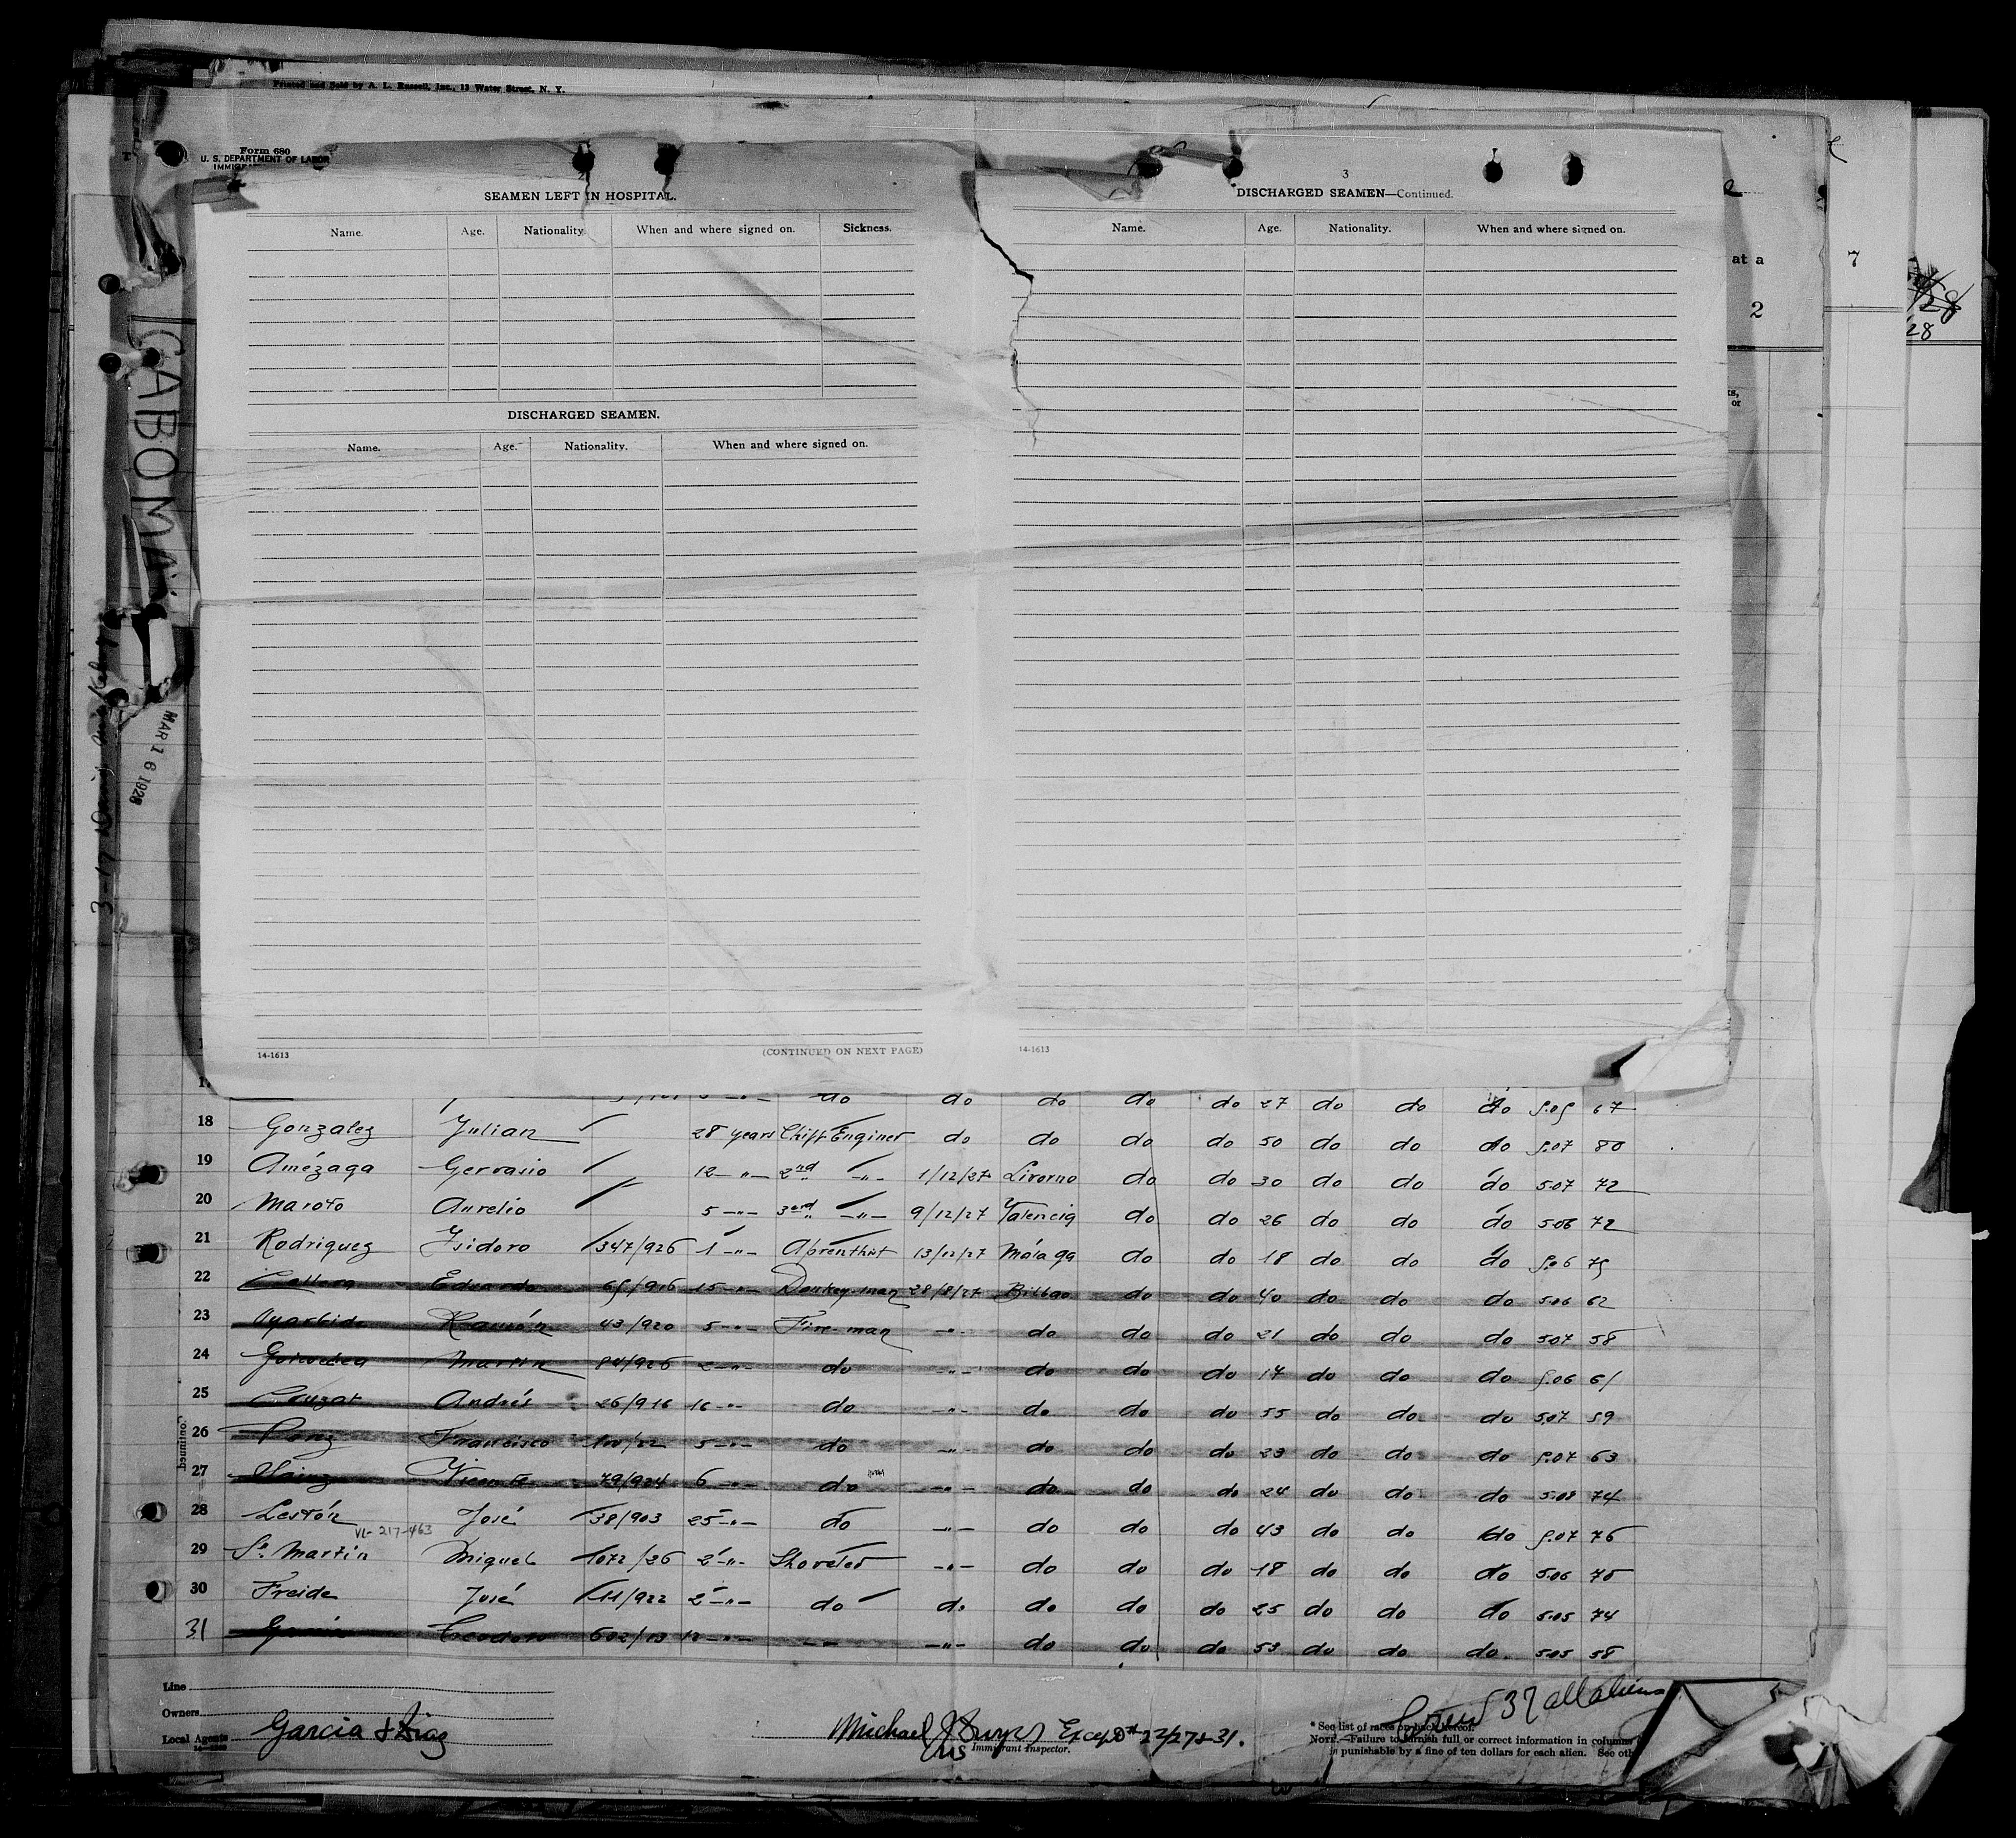 Printed and Sold by A. L. Russell, Inc., 13 Water Street, N. Y.
Form 680
U. S. DEPARTMENT OF LABOR
2
SEAMEN LEFT IN HOSPITAL.
Name. Age. Nationality. When and where signed on. Sickness.
DISCHARGED SEAMEN.
Name. Age. Nationality. When and where signed on.
14-1613 (CONTINUED ON NEXT PAGE)
3
DISCHARGED SEAMEN—Continued.
Name. Age. Nationality. When and where signed on.
14-1613
at a
2
7
28
CABOMA
MAR 16 1928
do do do do do 27 do do do 5.05 67
18 Gonzalez Julian 28 years Chiff Enginer do do do do 50 do do do 5.07 80
19 Amézaga Gervasio 12 -"- 2nd -"- 1/12/27 Livorno do do 30 do do do 5.07 72
20 Maroto Aurelio 5 -"- 3erd -"- 9/12/27 Valencia do do 26 do do do 5.06 72
21 Rodriguez Isidoro 347/926 1 -"- Aprenthist 13/12/27 Málaga do do 18 do do do 5.06 75
22 Eduardo 65/916 15 -"- Donkey-man 28/8/27 Bilbao do do 40 do do do 5.06 62
23 Oyarbide Ramón 43/920 5 -"- Fire-man -"- do do do 21 do do do 5.07 58
24 Goicoechea Martin 84/926 2 -"- do -"- do do do 17 do do do 5.06 61
25 Cruzat Andrés 26/916 16 -"- do -"- do do do 55 do do do 5.07 59
26 Francisco 5 -"- do -"- do do do 23 do do do 5.07 63
27 Sainz Vicente 79/924 6 -"- do -"- do do do 24 do do do 5.08 74
28 Lestón José 38/903 25 -"- do -"- do do do 43 do do do 5.07 76
VL-217-463
29 Sn. Martin Miguel 1072/26 2 -"- Shoveler -"- do do do 18 do do do 5.06 75
30 Freide José 11/922 2 -"- do do do do do 25 do do do 5.05 74
31 Garcia Teodoro 602/13 12 -"- -"- -"- do do do 53 do do do 5.05 58
Line
Owners
Local Agents Garcia & Diaz
Michael Except # 22/27 & 31.
Immigrant Inspector.
Crew 37 all aliens
* See list of races on back hereof.
NOTE.—Failure to furnish full or correct information in columns
is punishable by a fine of ten dollars for each alien. See oth